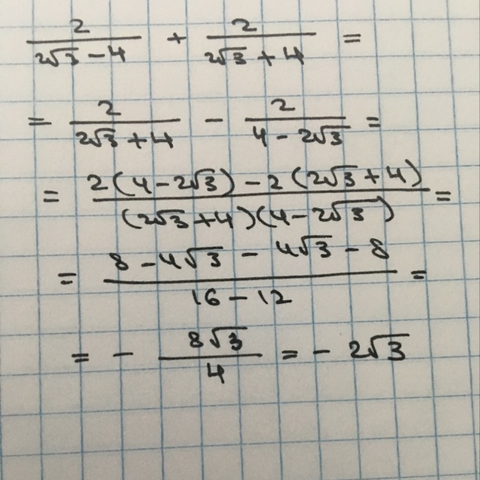 2/(2√3 − 4) + 2/(2√3 + 4) =
= 2/(2√3 + 4) − 2/(4 − 2√3) =
= (2(4 − 2√3) − 2(2√3 + 4))/((2√3 + 4)(4 − 2√3)) =
= (8 − 4√3 − 4√3 − 8)/(16 − 12) =
= − 8√3/4 = − 2√3